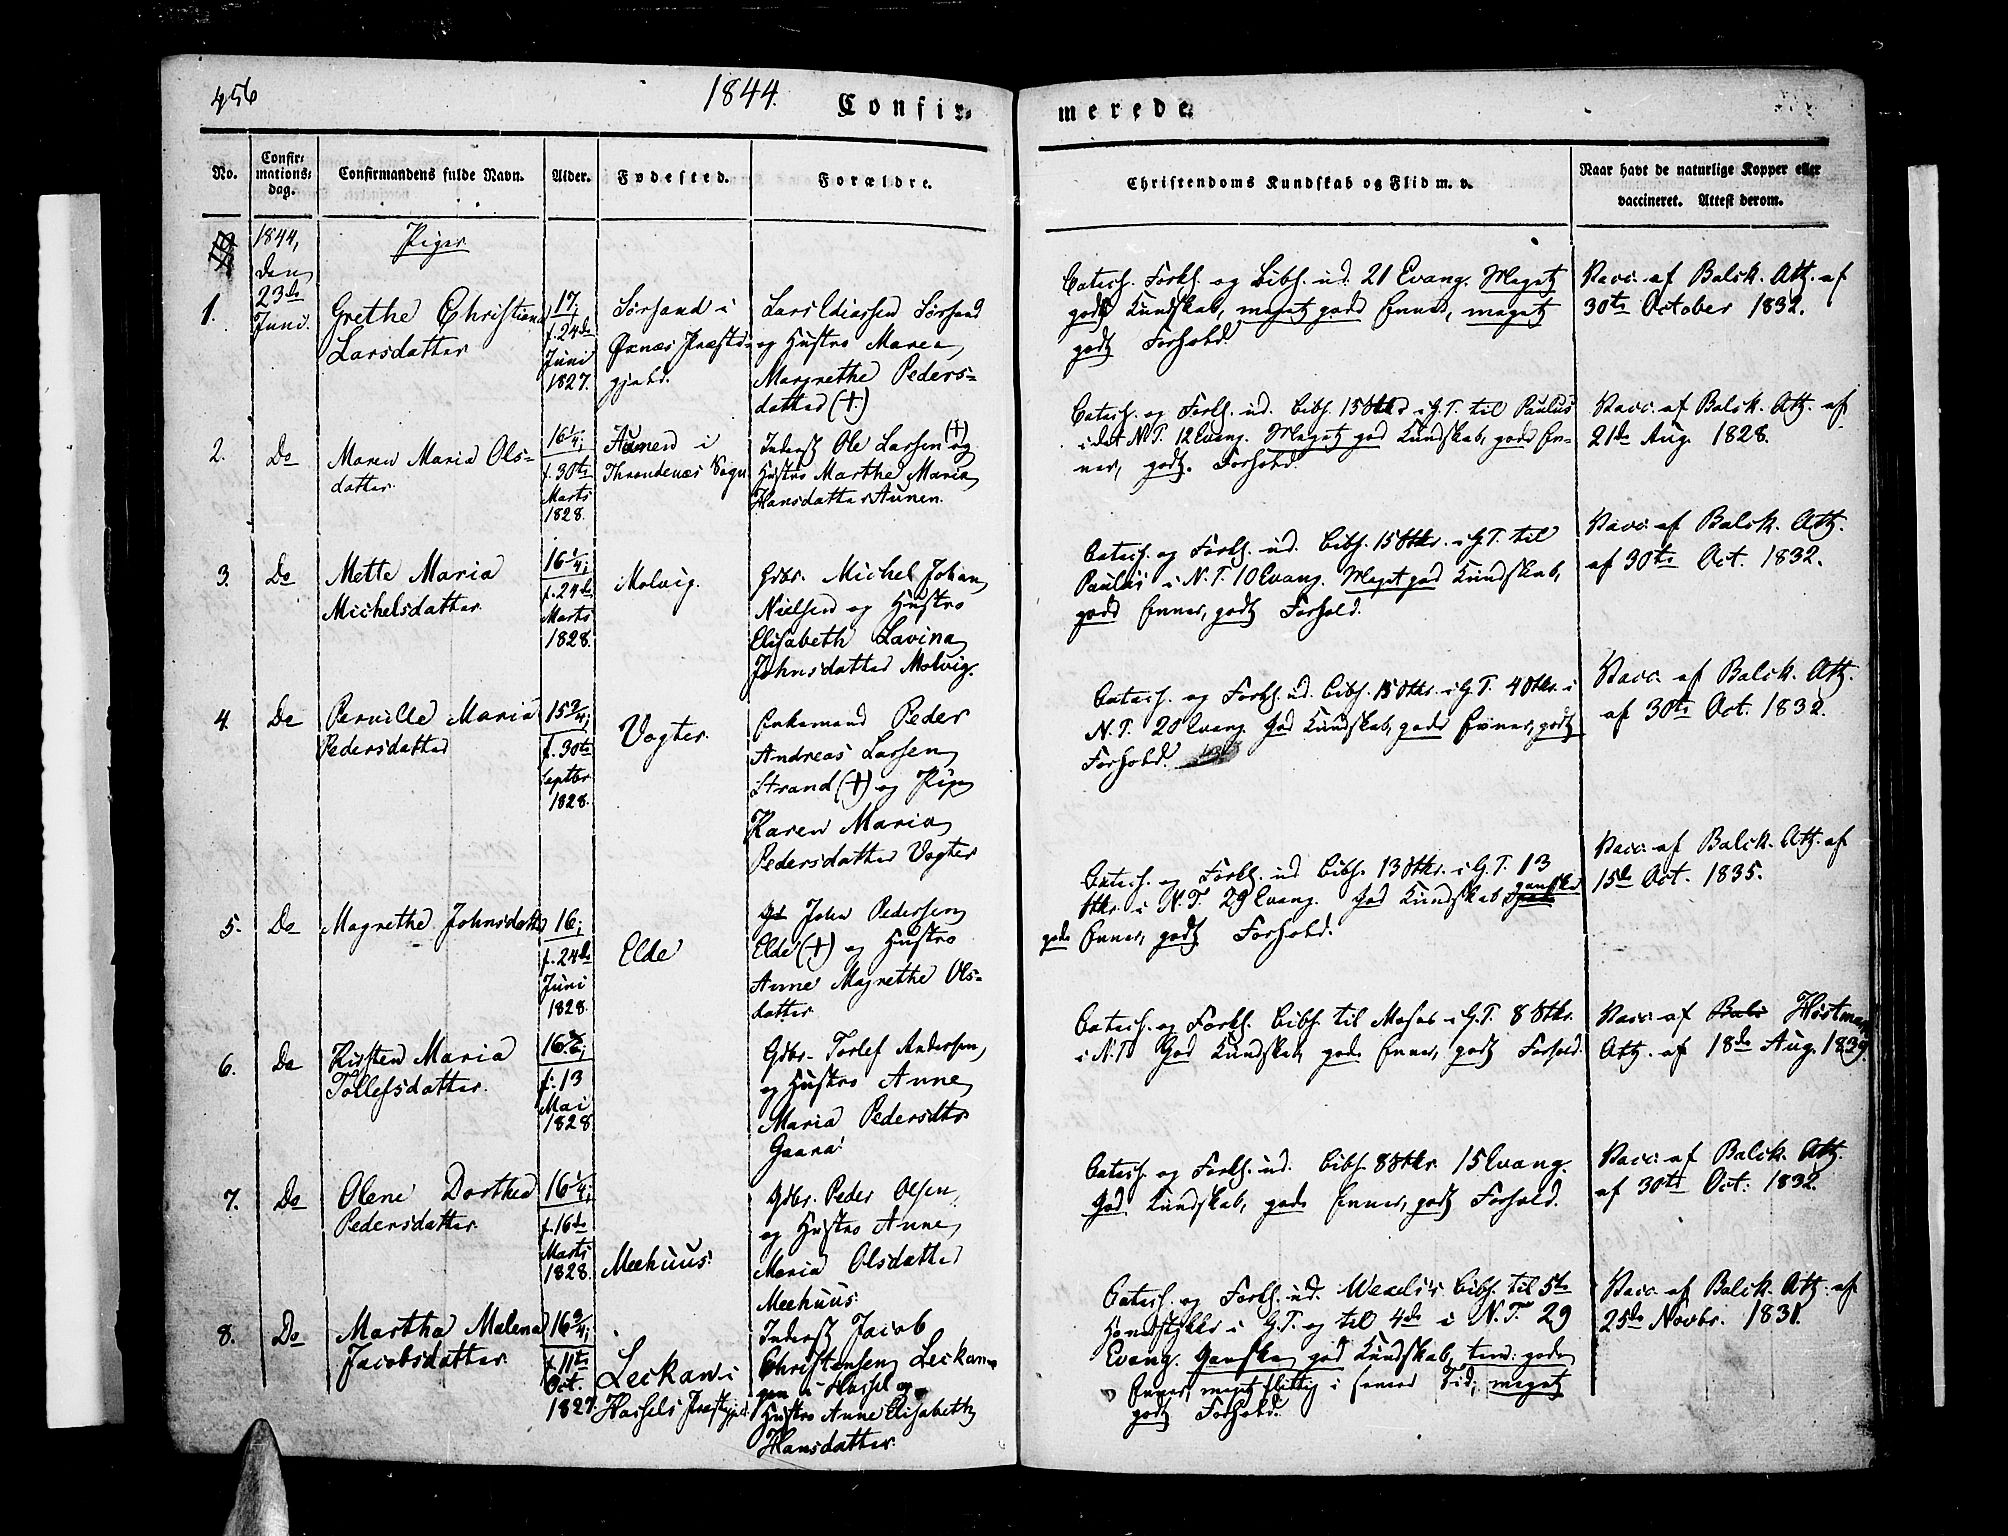 456
1844.
Confir-
merede
No.
Confir-
mations-
dag.
Confirmandens fulde Navn.
Alder.
Fødested.
Forældre.
Christendoms Kundskab og Flid m. v.
Naar havt de naturlige Kopper eller
vaccineret. Attest derom.
1844,
den
23de
Juni.
Piger
1.
Grethe Christiana
Larsdatter
17,
f. 24de
Juni
1827.
Sørsand i
Øxnæs Præste-
gjeld.
Lars Sørsand
og Hustro Maren
Margrethe Peders-
datter (+)
Catech. Forkl. og Bibh. ud. 21 Evang. Meget
god Kundskab, meget gode Evner, meget
godt Forhold.
Vacc. af Balck. Att. af
30te October 1832.
2.
Do
Maren Maria Ols-
datter
16 1/4;
f. 30te
Marts
1828.
Aunen i
Throndenæs Sogn
Inderst Ole Larsen (+) og
Hustro Marthe Maria
Hansdatter Aunen.
Catech. og Forkl. ud. Bibh. 15 Stkr i G.T. til Paulus
i det N.T. 12 Evang. Meget god Kundskab, gode Ev-
ner, godt Forhold.
Vacc. af Balck. Att. af
21de Aug. 1828.
3.
Do
Mette Maria
Michelsdatter
16 1/4;
f. 24de
Marts
1828.
Molvig.
Gdbr. Michel Johan
Nielsen og Hustro
Elisabeth Lavina
Johnsdatter Molvig.
Catech. og Forkl. ud. Bibh. 15 Stkr. i G.T. til
Paulus i N.T. 10 Evang. Meget god Kundskab,
gode Evner, godt Forhold.
Vacc. af Balck. Att.
af 30te Oct. 1832.
4.
Do
Pernille Maria
Pedersdatter
15 3/4;
f. 30te
Septbr
1828.
Vogter.
Enkemand Peder
Andreas Larsen
Strand (+) og Pige
Karen Maria
Pedersdatter Vogter
Catech. og Forkl. ud. Bibh. 15 Stkr. i G.T. 4 Stkr. i
N.T. 20 Evang. God Kundskab, gode Evner, godt
Forhold.
Vacc. af Balck. Att.
af 30te Oct. 1832.
5.
Do
Magrethe Johnsdatter
16;
f. 24de
Juni
1828.
Elde
Gd John Pedersen
Elde (+) og Hustro
Anne Magrethe Ols-
datter
Catech. og Forkl. ud Bibh. 13 Stkr. i G.T. 13
Stkr. i N.T. 29 Evang. God Kundskab, ganske
gode Evner, godt Forhold.
Vacc. af Balck. Att. af
15de Oct. 1835.
6.
Do
Kirsten Maria
Tollefsdatter.
16
f. 13
Mai
1828
Gdbr. Torlef Andersen
og Hustro Anne
Maria Pedersdtr
Gaara
Catech. og Forkl. Bibh. til Moses i G.T. 8 Stkr.
i N.T. God Kundskab, gode Evner, godt Forhold.
Vacc. af Balc Høstmark
Att. af 18de Aug. 1839.
7.
Do
Olene Dorthea
Pedersdatter
16 1/4;
f. 16de
Marts
1828.
Meehuus.
Gdbr. Peder Olsen
og Hustro Anne
Maria Olsdatter
Meehuus
Catech. og Forkl. ud. Bibh. 8 Stkr. 15 Evang.
God Kundskab, gode Evner, godt Forhold.
Vacc. af Balck. Att.
af 30te Oct. 1832.
8.
Do
Martha Malena
Jacobsdatter
16 3/4;
f. 11te
Oct.
1827.
Leekan i
Hassels Præstegjeld
Inderst Jacob
Christensen Leekan-
gen i Hassel og
Hustro Anne Elisabeth
Hansdatter
Catech. og Forkl. ud. Wexels's Bibh. til 5te
Hovedstykke i G.T. og til 4de i N.T. 29
Evang. Ganske god Kundskab, tem. gode
Evner, meget flittig i senere Tid, meget
godt Forhold.
Vacc. af Balck. Att. af
25de Novbr. 1831.